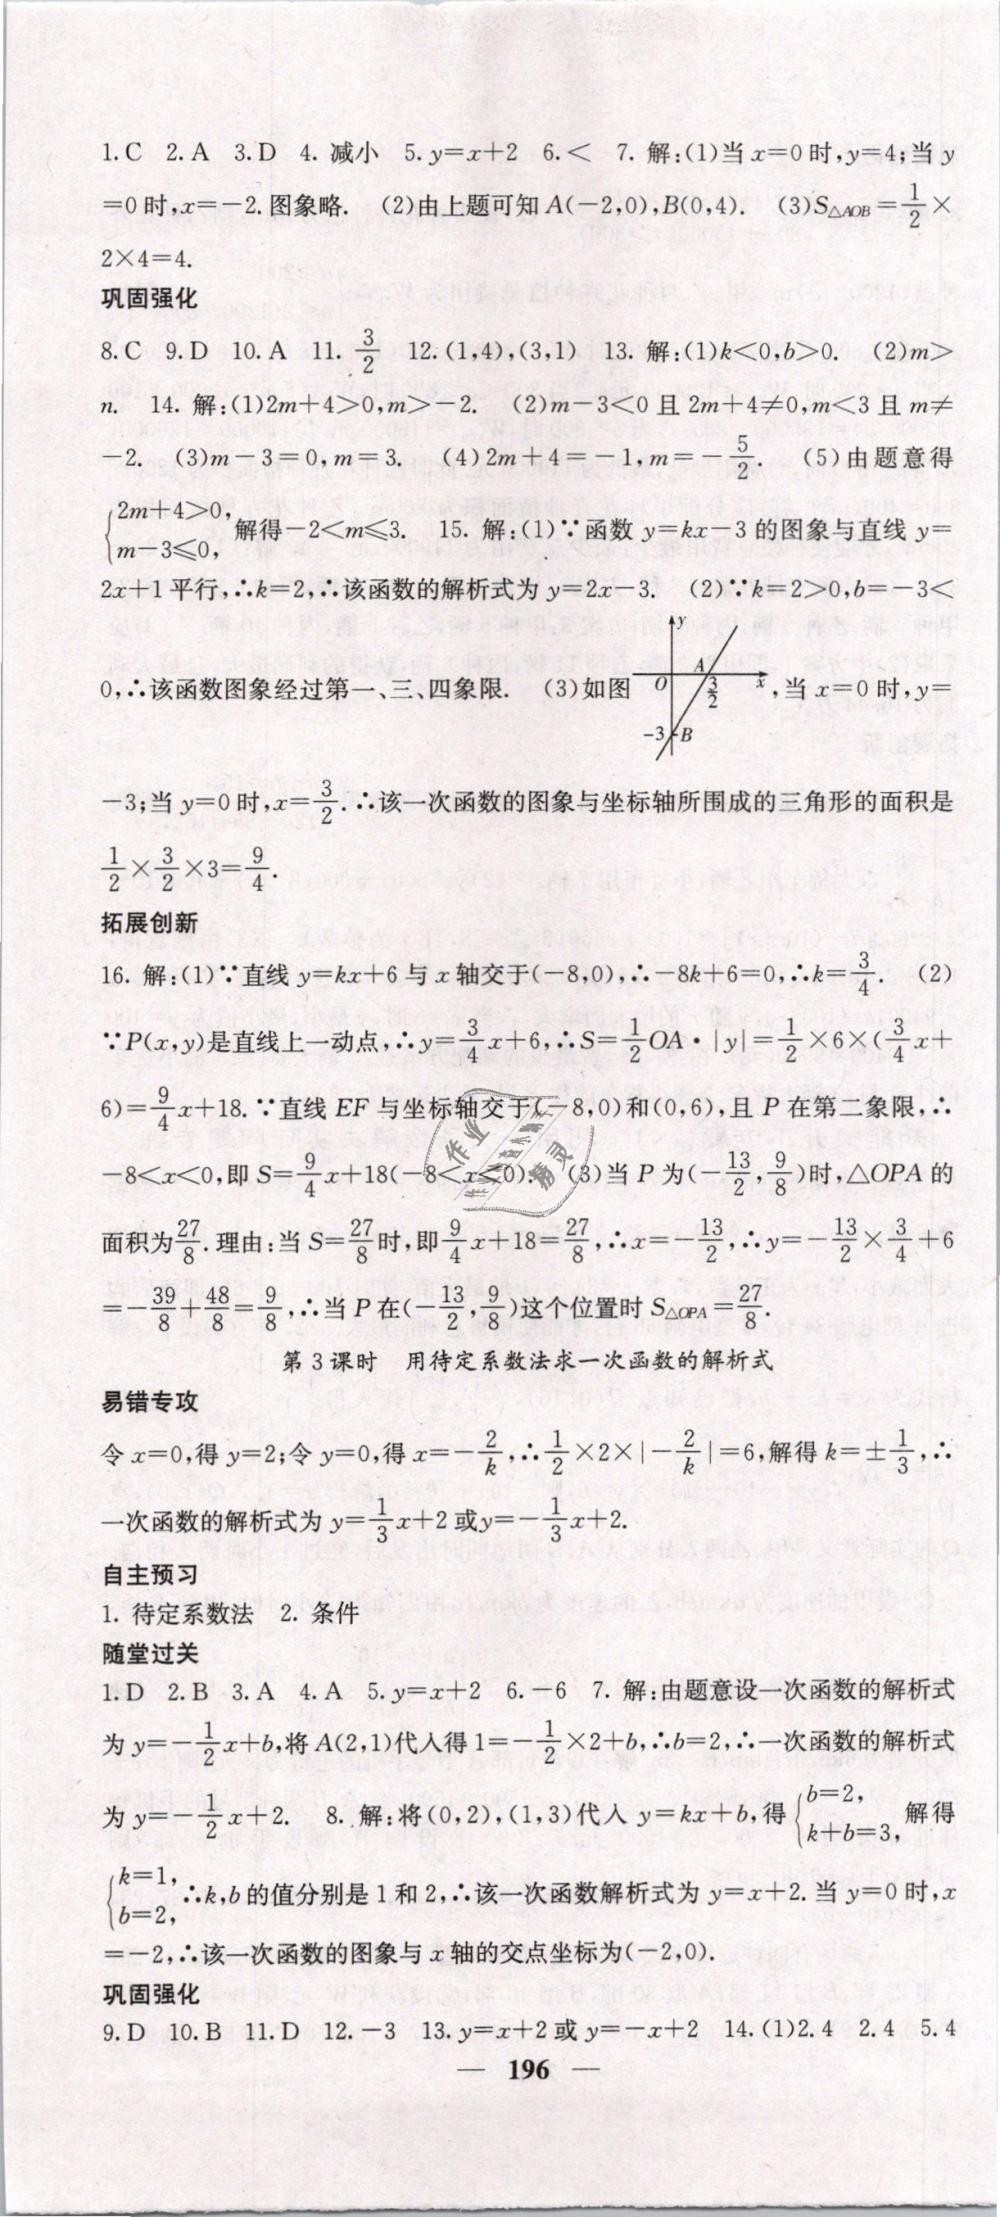 1.C 2.A 3.D 4. 减小 5.y=x+2 6.< 7. 解:(1)当 x=0 时,y=4;当 y
=0 时,x=-2.图象略. (2)由上题可知 A(-2,0),B(0,4). (3)S△AOB=1/2×
2×4=4.
巩固强化
8.C 9.D 10.A 11. 3/2 12.(1,4),(3,1) 13. 解:(1)k<0,b>0. (2)m>
n. 14. 解:(1)2m+4>0,m>-2. (2)m-3<0 且 2m+4≠0,m<3 且 m≠
-2. (3)m-3=0,m=3. (4)2m+4=-1,m=-5/2. (5)由题意得
{2m+4>0, m-3⩽0, 解得-2<m⩽3. 15. 解:(1)∵函数 y=kx-3 的图象与直线 y=
2x+1 平行,∴k=2,∴该函数的解析式为 y=2x-3. (2)∵k=2>0,b=-3<
0,∴该函数图象经过第一、三、四象限. (3)如图 y A O 3/2 x -3 B ,当 x=0 时,y=
-3;当 y=0 时,x=3/2.∴该一次函数的图象与坐标轴所围成的三角形的面积是
1/2×3/2×3=9/4.
拓展创新
16. 解:(1)∵直线 y=kx+6 与 x 轴交于(-8,0),∴-8k+6=0,∴k=3/4. (2)
∵P(x,y)是直线上一动点,∴y=3/4x+6,∴S=1/2OA·|y|=1/2×6×(3/4x+
6)=9/4x+18.∵直线 EF 与坐标轴交于(-8,0)和(0,6),且 P 在第二象限,∴
-8<x<0,即 S=9/4x+18(-8<x<0). (3)当 P 为(-13/2,9/8)时,△OPA 的
面积为27/8.理由:当 S=27/8时,即9/4x+18=27/8,∴x=-13/2,∴y=-13/2×3/4+6
=-39/8+48/8=9/8,∴当 P 在(-13/2,9/8)这个位置时 S△OPA=27/8.
第 3 课时 用待定系数法求一次函数的解析式
易错专攻
令 x=0,得 y=2;令 y=0,得 x=-2/k,∴1/2×2×|-2/k|=6,解得 k=±1/3,∴
一次函数的解析式为 y=1/3x+2 或y=-1/3x+2.
自主预习
1. 待定系数法 2. 条件
随堂过关
1.D 2.B 3.A 4.A 5.y=x+2 6.-6 7. 解:由题意设一次函数的解析式
为 y=-1/2x+b,将 A(2,1)代入得 1=-1/2×2+b,∴b=2,∴一次函数的解析式
为 y=-1/2x+2. 8. 解:将(0,2),(1,3)代入 y=kx+b,得{b=2, k+b=3, 解得
{k=1, b=2, ∴k,b 的值分别是 1 和 2,∴该一次函数解析式为 y=x+2.当 y=0 时,x
=-2,∴该一次函数的图象与 x 轴的交点坐标为(-2,0).
巩固强化
9.D 10.B 11.D 12.-3 13.y=x+2 或 y=-x+2 14.(1)2.4 2.4 5.4
— 196 —